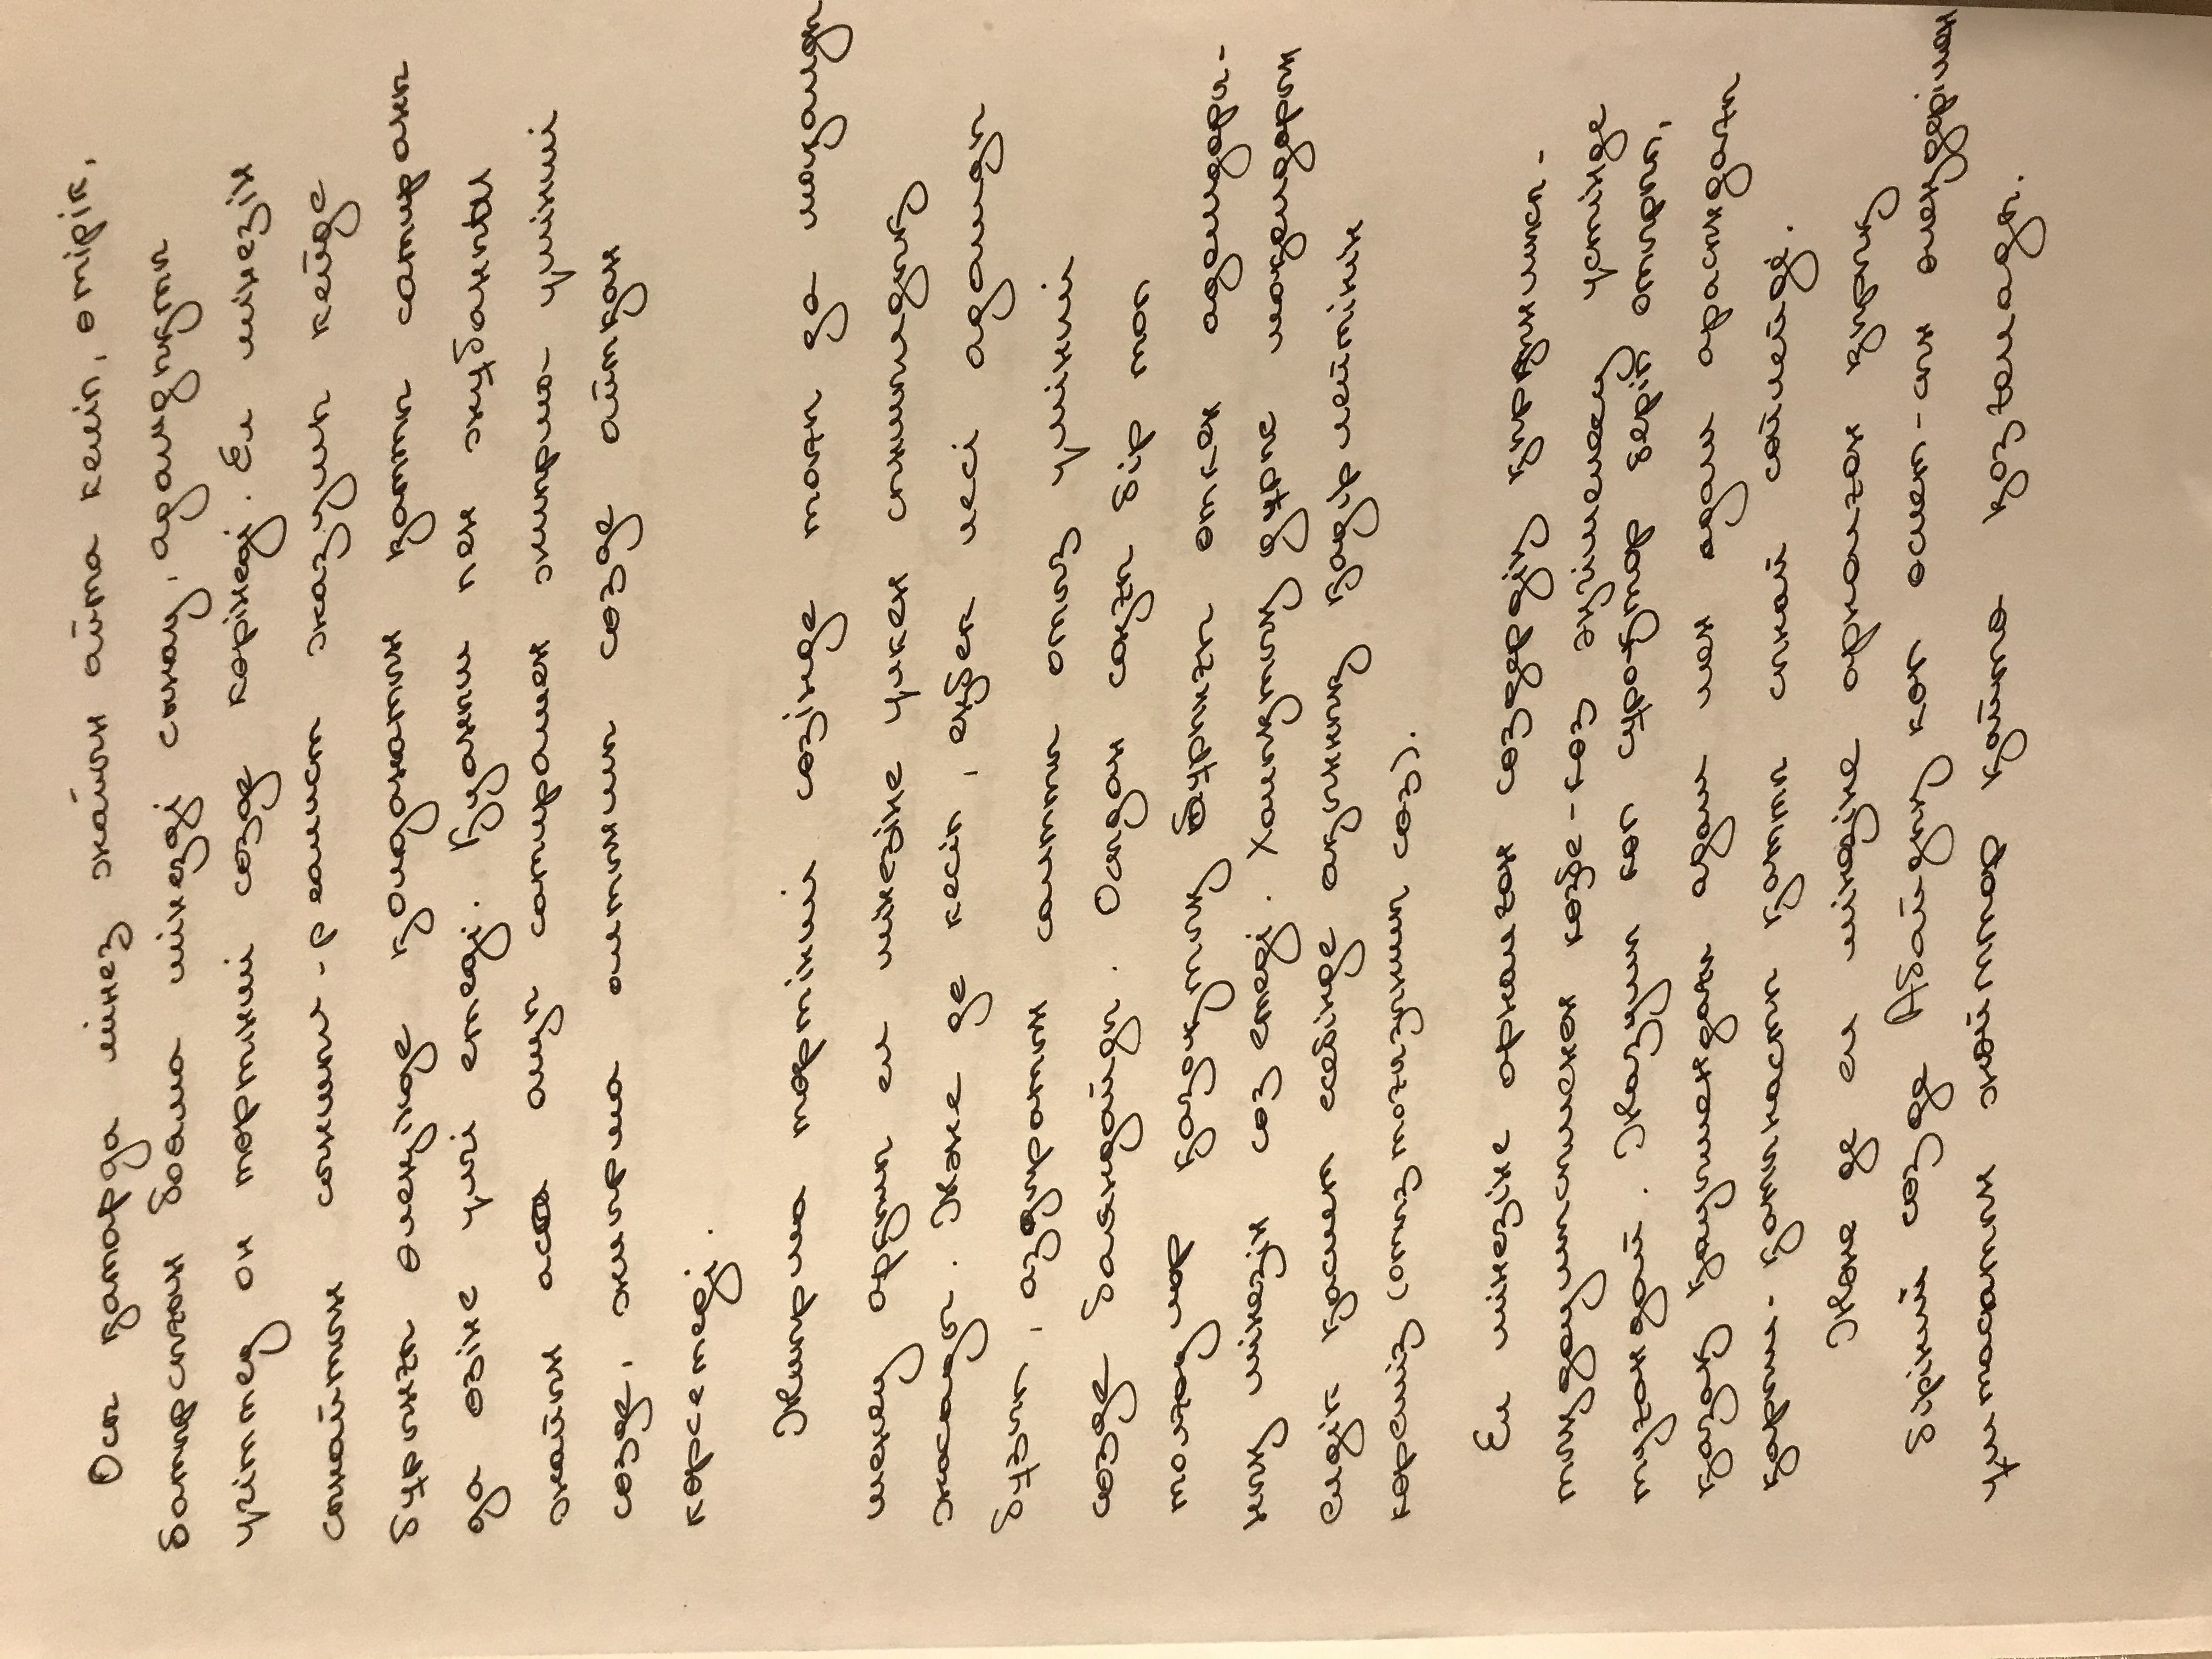 Осы қатарда мінез жайын айта келіп, өтірік,
батырсыған бояма мінезді сынау, адамдықты
үгіттеу он төртінші сөзде көрінеді. Ел мінезін
сынайтын сыншыл-реалист жазушы кейде
бұрынғы өлеңінде қолданатын қатты сатираны
да өзіне үлгі етеді. Қуаныш пен жұбаныш
жайын аса ащы сатирамен жиырма үшінші
сөзде, жиырма алтыншы сөзде айтқан
көрсетеді.
Жиырма төртінші сөзінде тағы да мазамды
шенеу арқылы ел мінезіне үлкен сыншылдық
жасады. Және де кесіп, еңбек иесі адамды
бұзып, аздыратын салтты отыз үшінші
сөзде баяндайды. Осыдан соңғы бір топ
толғаулар қазақтың бұрынғы өткен адамдары-
ның мінезін сөз етеді. Халықтың дұрыс мақалдарын
елдік қасиет есебінде ақынның қадірлейтінін
көреміз (отыз тоғызыншы сөз).
Ел мінезіне арналған сөздердің қырқыншысы-
тыңдаушысымен көзбе-көз әңгімелесу үстінде
туғандай. Жазушы көп сұрақтар беріп отырып,
қазақ қауымындағы адам мен адам арасындағы
қарым-қатынасты қатты сынай сөйлейді.
Және де ел мінезіне арналған қырық
бірінші сөзде Абайдың көп өсиет-сын өлеңдерімен
ұштасатын жәйттар қайта қозғалады.